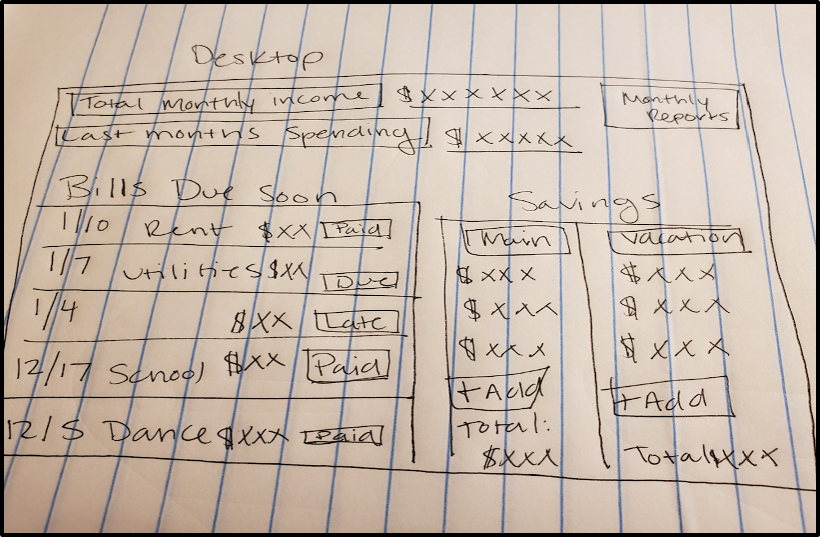 Desktop
Total monthly income $XXXXXX
Monthly
Reports
Last months Spending $XXXXX
Bills Due Soon
1/10 Rent $XX Paid
1/7 utilities $XX Due
1/4 $XX Late
12/17 School $XX Paid
12/5 Dance $XXX Paid
Savings
Main
$XXX
$XXX
$XXX
+Add
Total:
$XXX
Vacation
$XXX
$XXX
$XXX
+Add
Total $XXX